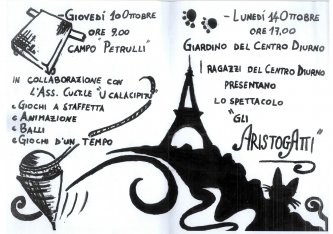 - GIOVEDÌ 10 OTTOBRE
ORE 9.00
CAMPO "PETRULLI"
IN COLLABORAZIONE CON
L'ASS. CULT.LE "U CALACIPITU"
GIOCHI A STAFFETTA
ANIMAZIONE
BALLI
GIOCHI D'UN TEMPO
- LUNEDÌ 14 OTTOBRE
ORE 17,00
GIARDINO DEL CENTRO DIURNO
I RAGAZZI DEL CENTRO DIURNO
PRESENTANO
LO SPETTACOLO
"GLI
ARISTOGATTI"